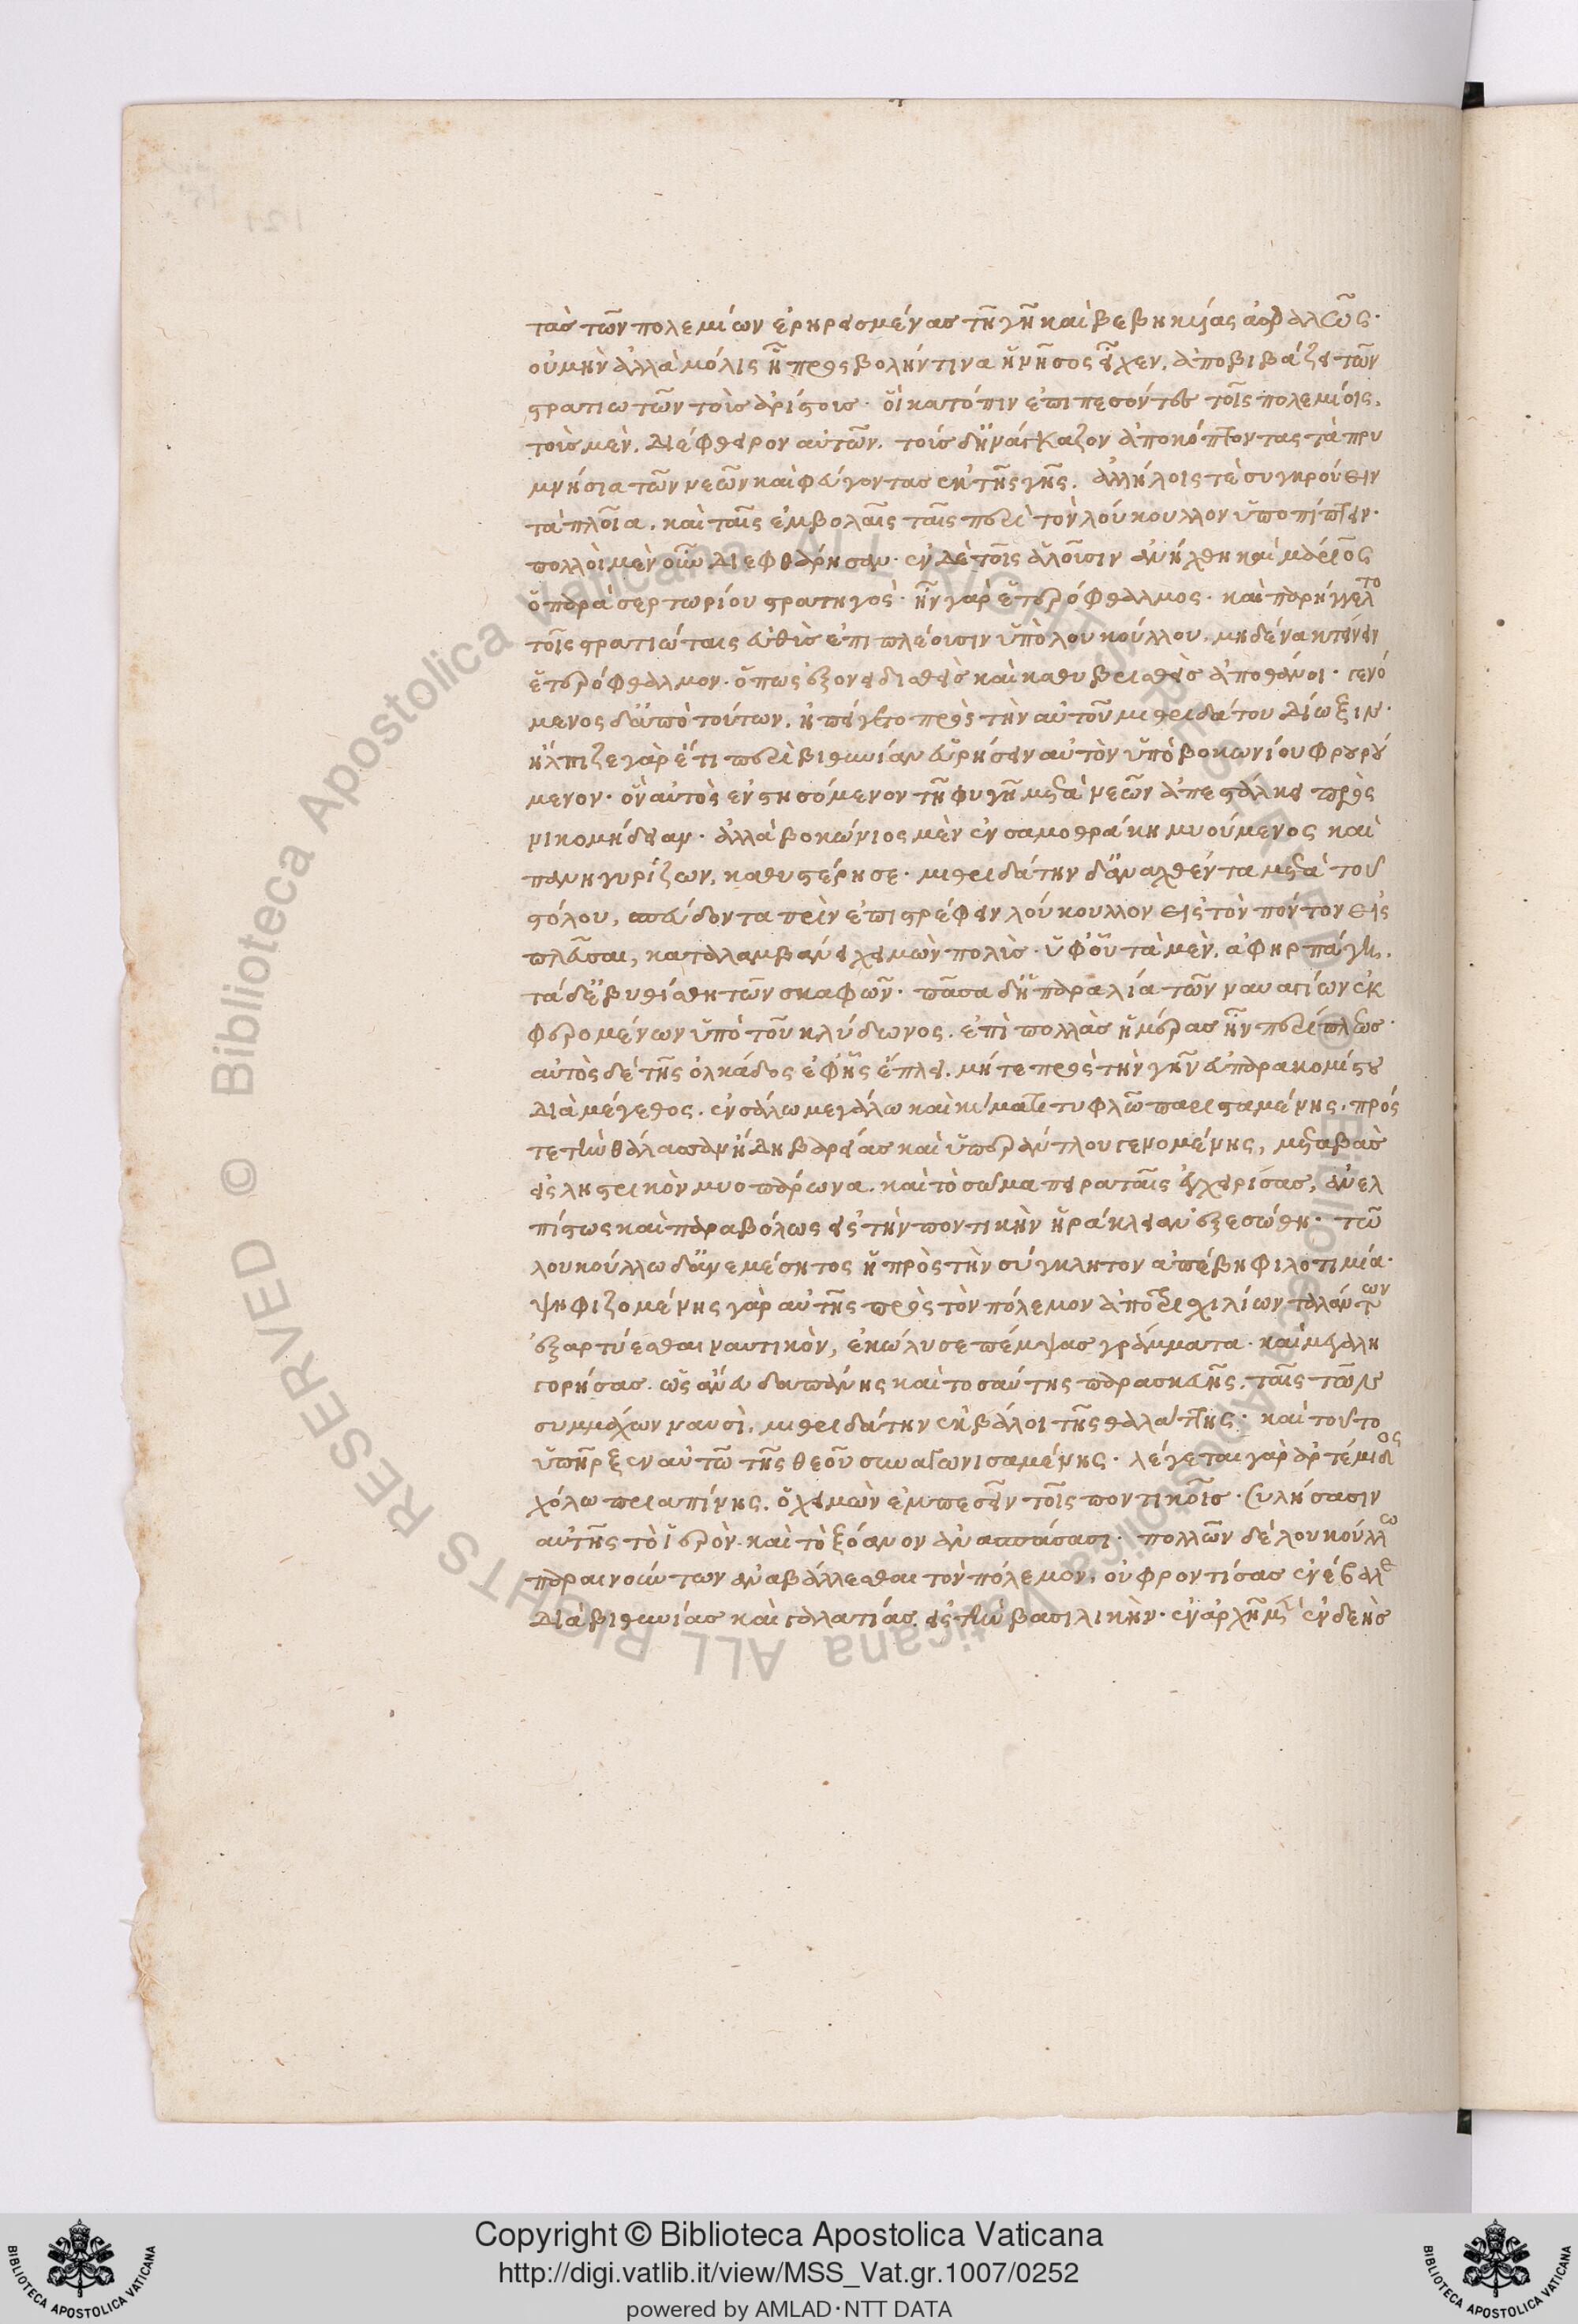 τὰς τῶν πολεμίων ἐρηρεισμένας τῇ γῇ καὶ βεβηκυίας ἀσφαλῶς·
οὐ μὴν ἀλλὰ μόλις ᾗ προσβολήν τινα ἡ νῆσος εἶχεν, ἀποβιβάζει τῶν
στρατιωτῶν τοὺς ἀρίστους· οἳ κατόπιν ἐπιπεσόντες τοῖς πολεμίοις,
τοὺς μὲν, διέφθειρον αὐτῶν, τοὺς δ' ἠνάγκαζον ἀποκόπτοντας τὰ πρυ
μνήσια τῶν νεῶν καὶ φεύγοντας ἐκ τῆς γῆς, ἀλλήλοις τὲ συγκρούειν
τὰ πλοῖα, καὶ ταῖς ἐμβολαῖς ταῖς περὶ τὸν λούκουλλον ὑποπίπτειν·
πολλοὶ μὲν οὖν διεφθάρησαν· ἐν δὲ τοῖς ἁλοῦσιν ἀνήχθη καὶ μάριος
ὁ παρὰ σερτωρίου στρατηγὸς· ἦν γὰρ ἑτερόφθαλμος· καὶ παρήγγελτο
τοῖς στρατιώταις εὐθὺς ἐπιπλέουσιν ὑπὸ λουκούλλου, μηδένα κτείνειν
ἑτερόφθαλμον· ὅπως ἐξονειδισθεὶς καὶ καθυβρισθεὶς ἀποθάνοι· γενό
μενος δ' ἀπὸ τούτων, ἠπείγετο πρὸς τὴν αὐτοῦ μιθριδάτου δίωξιν·
ἤλπιζε γὰρ ἔτι περὶ βιθυνίαν εὑρήσειν αὐτὸν ὑπὸ βοκωνίου φρουρού
μενον· ὃν αὐτὸς ἐνστησόμενον τῇ φυγῇ μετὰ νεῶν ἀπεστάλκει πρὸς
νικομήδειαν· ἀλλὰ βοκώνιος μὲν ἐν σαμοθράκῃ μυούμενος καὶ
πανηγυρίζων, καθυστέρησε· μιθριδάτην δ' ἀναχθέντα μετὰ τοῦ
στόλου, σπεύδοντα πρὶν ἐπιστρέφειν λούκουλλον εἰς τὸν πόντον εἰς
πλεῦσαι, καταλαμβάνει χειμὼν πολὺς· ὑφ' οὗ τὰ μὲν, ἀφηρπάγη,
τὰ δ' ἐβυθίσθη τῶν σκαφῶν· πᾶσα δ' ἡ παραλία τῶν ναυαγίων ἐκ
φερομένων ὑπὸ τοῦ κλύδωνος, ἐπὶ πολλὰς ἡμέρας ἦν περίπλεως·
αὐτὸς δὲ τῆς ὁλκάδος ἐφ' ἧς ἔπλει, μήτε πρὸς τὴν γῆν εὐπαρακομίστου
διὰ μέγεθος, ἐν σάλω μεγάλω καὶ κύματι τυφλῶ παρισταμένης, πρός
τε τὴν θάλασσαν ἤδη βαρείας καὶ ὑπεράντλου γενομένης, μεταβὰς
εἰς ληστρικὸν μυοπάρωνα, καὶ τὸ σῶμα πειραταῖς ἐγχειρίσας, ἀνελ
πίστως καὶ παραβόλως εἰς τὴν ποντικὴν ἡράκλειαν ἐξεσώθη· τῷ
λουκούλλω δ' ἀνεμέσητος ἡ πρὸς τὴν σύγκλητον ἀπέβη φιλοτιμία·
ψηφιζομένης γὰρ αὐτῆς πρὸς τὸν πόλεμον ἀπὸ τρισχιλίων ταλάντων
ἐξαρτύεσθαι ναυτικὸν, ἐκώλυσε πέμψας γράμματα· καὶ μεγαλη
γορήσας, ὡς ἄνευ δαπάνης καὶ τοσαύτης παρασκευῆς, ταῖς τῶν
συμμάχων ναυσὶ, μιθριδάτην ἐκβάλοι τῆς θαλάττης· καὶ τοῦτο
ὑπῆρξεν αὐτῶ τῆς θεοῦ συναγωνισαμένης· λέγεται γὰρ ἀρτέμιδος
χόλω πριαπίνης, ὁ χειμὼν ἐμπεσεῖν τοῖς ποντικοῖς· συλήσασιν
αὐτῆς τὸ ἱερὸν καὶ τὸ ξόανον ἀνασπάσασι· πολλῶν δὲ λουκούλλω
παραινούντων ἀναβάλλεσθαι τὸν πόλεμον, οὐ φροντίσας ἐνέβαλε
διὰ βιθυνίας καὶ γαλατίας, εἰς τὴν βασιλικὴν· ἐν ἀρχῇ μὲν ἐνδεὴς